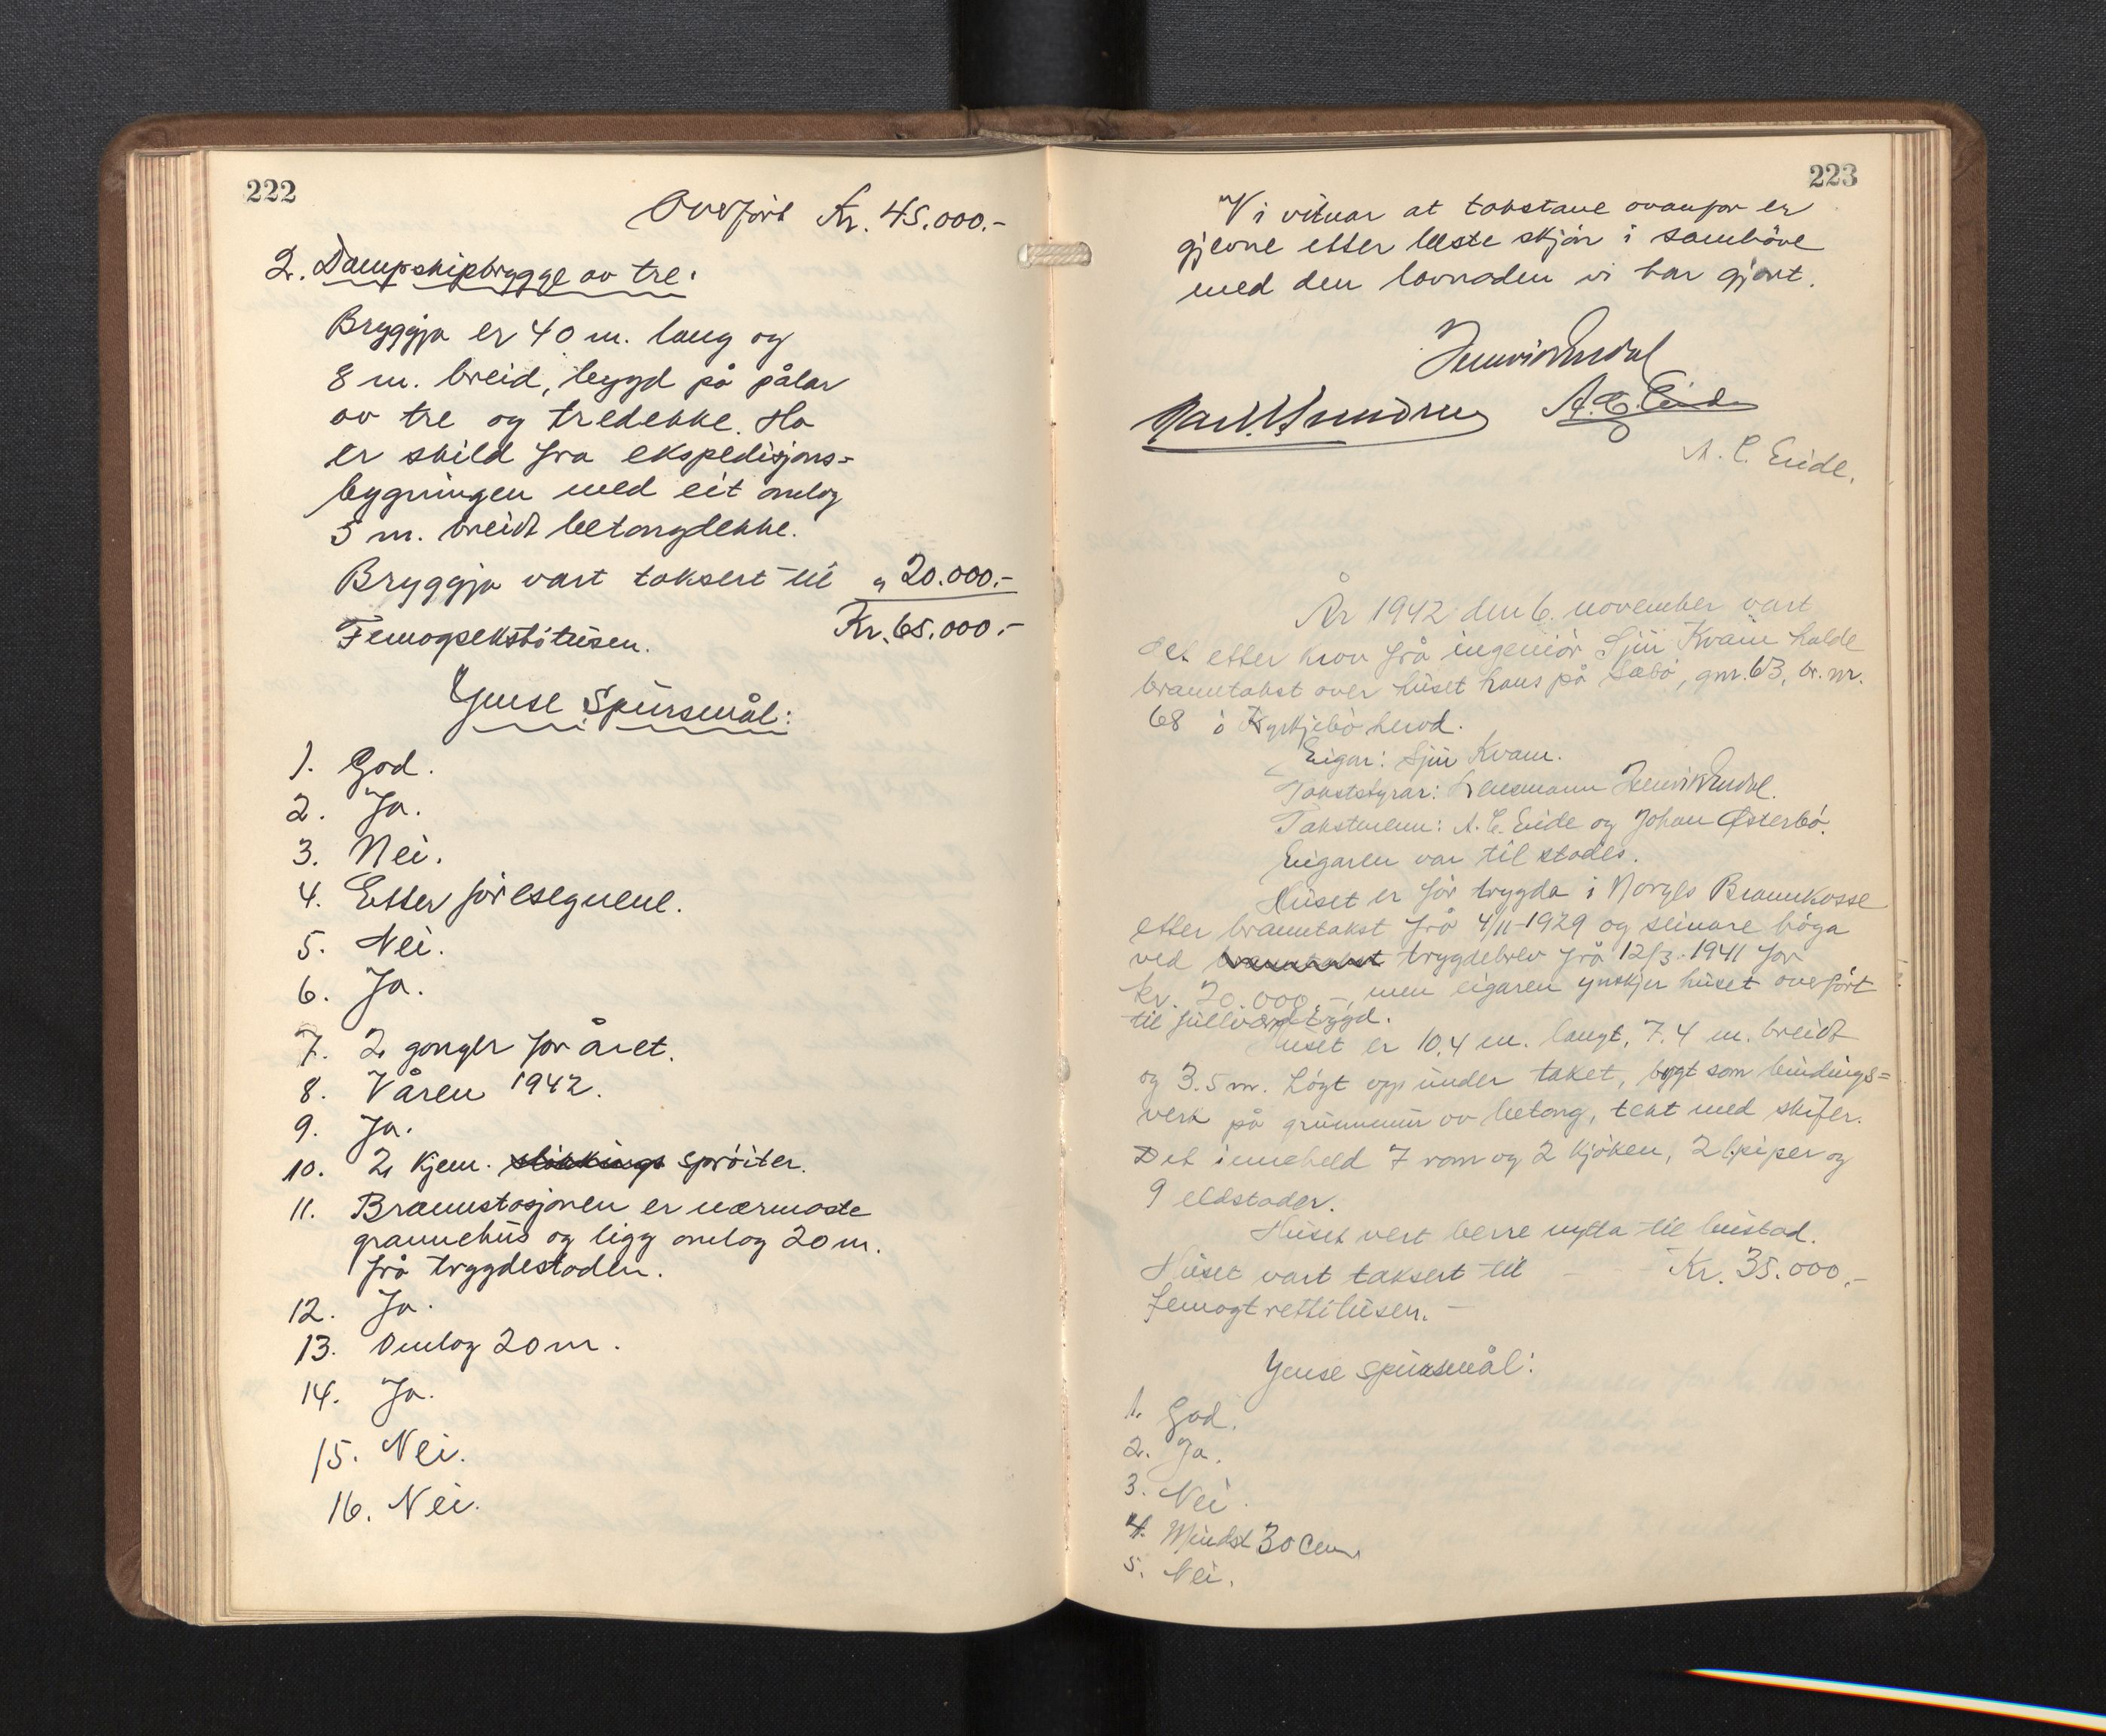 222
Overført Kr. 45.000.-
2. Dampskipbrygge av tre:
Bryggja er 40 m. lang og
8 m. breid, bygd på pålar
av tre og tredekke. Ho
er skild fra ekspedisjons=
bygningen med eit omlag
5 m. breidt betongdekke.
Bryggja vart taksert til " 20.000.-
Femogsekstitusen. Kr. 65.000.-
Ymse Spursmål:
1. God.
2. Ja.
3. Nei.
4. Etter føresegnene.
5. Nei.
6. Ja.
7. 2 gonger for året.
8. Våren 1942.
9. Ja.
10. 2 kjem. sløkkings sprøiter.
11. Brannstasjonen er nærmaste
grannehus og ligg omlag 20 m.
frå trygdestaden.
12. Ja.
13. Omlag 20 m.
14. Ja.
15. Nei.
16. Nei.
223
Vi vitnar at takstane ovanfor er
gjevne etter beste skjøn i samhøve
med den lovnaden vi har gjort.
A. C. Eide
A. C. Eide.
År 1942 den 6. november vart
det etter krav frå ingeniør Sjur Kvam halde
branntakst over huset hans på Sæbø, gnr. 63, br. nr.
68 i Kyrkjebø herad.
Eigar: Sjur Kvam.
Takststyrar: Lensmann
Takstmenn: A. C. Eide og Johan Østerbø.
Eigaren var til stades.
Huset er før trygda i Norges Brannkasse
etter branntakst frå 4/11-1929 og seinare høga
ved branntakst trygdebrev frå 12/3-1941 for
kr. 20.000.-, men eigaren ynskjer huset overført
til fullverditrygd.
Huset er 10,4 m. langt, 7.4 m. breidt
og 3.5 m. høgt opp under taket, bygt som bindings=
verk på grunnmur av betong, tekt med skifer.
Det inneheld 7 rom og 2 kjøken, 2 piper og
9 eldstader.
Huset vert berre nytta til bustad.
Huset vart taksert til - - - Kr. 35.000.-
femogtrettitusen.-
Ymse spursmål:
1. God.
2. Ja.
3. Nei.
4. Mindst 30 cm
5. Nei.